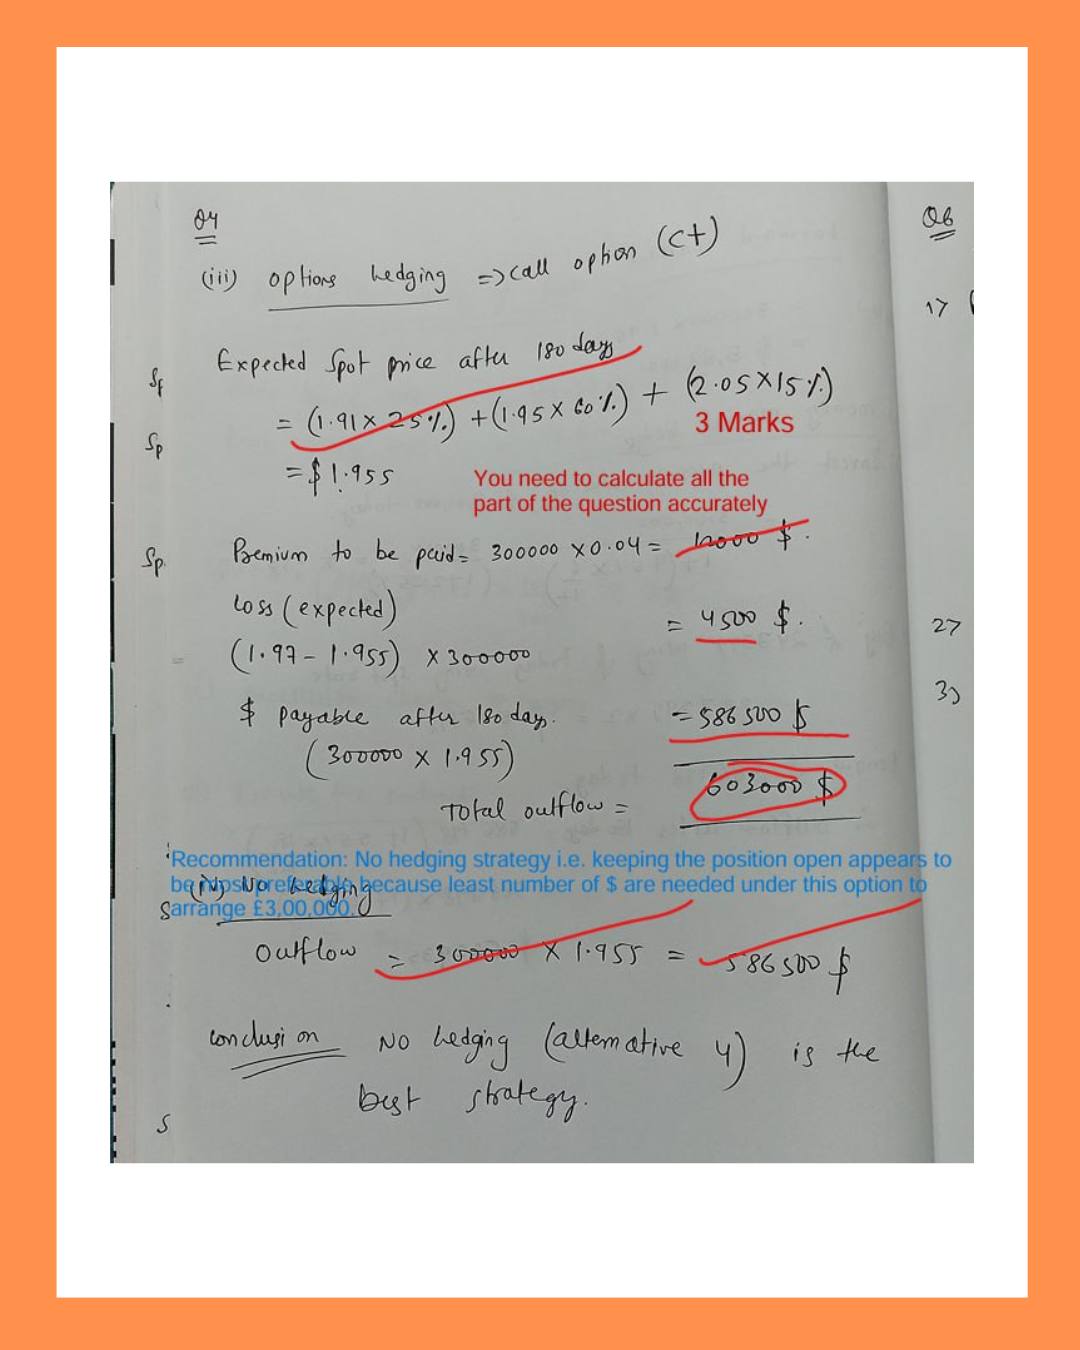 Q4
(iii) options hedging => call option (c+)
Expected Spot price after 180 days
= (1.91 x 25%) + (1.95 x 60%) + (2.05 x 15%)
3 Marks
= $ 1.955
You need to calculate all the
part of the question accurately
Premium to be paid = 300000 x 0.04 = 12000 $.
Loss (expected)
= 4500 $.
(1.97 - 1.955) x 300000
$ payable after 180 days.
= 586500 $
(300000 x 1.955)
Total outflow = 603000 $
Recommendation: No hedging strategy i.e. keeping the position open appears to
be most preferable because least number of $ are needed under this option to
arrange £3,00,000.
(iv) No hedging
Outflow = 300000 x 1.955 = 586500 $
conclusion No hedging (alternative 4) is the
best strategy.
Q6
17
27
33
Sf
Sp
Sp.
S
S